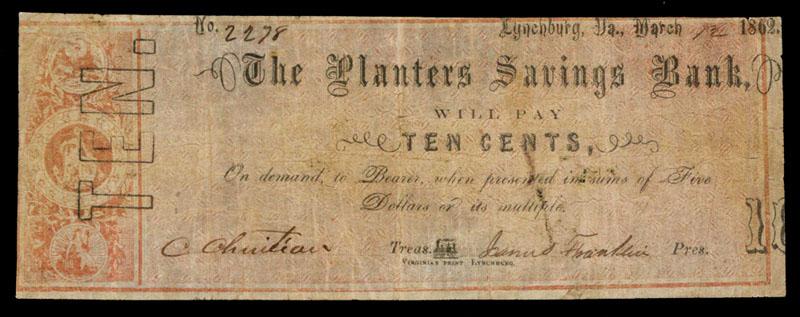 No. 2278 Lynchburg, Va., March 1862.
TEN.
The Planters Savings Bank,
WILL PAY
TEN CENTS,
On demand, to Bearer, when presented in sums of Five
Dollars or its multiple.
C Christian Treas. James Franklin Pres.
VIRGINIAN PRINT LYNCHBURG.